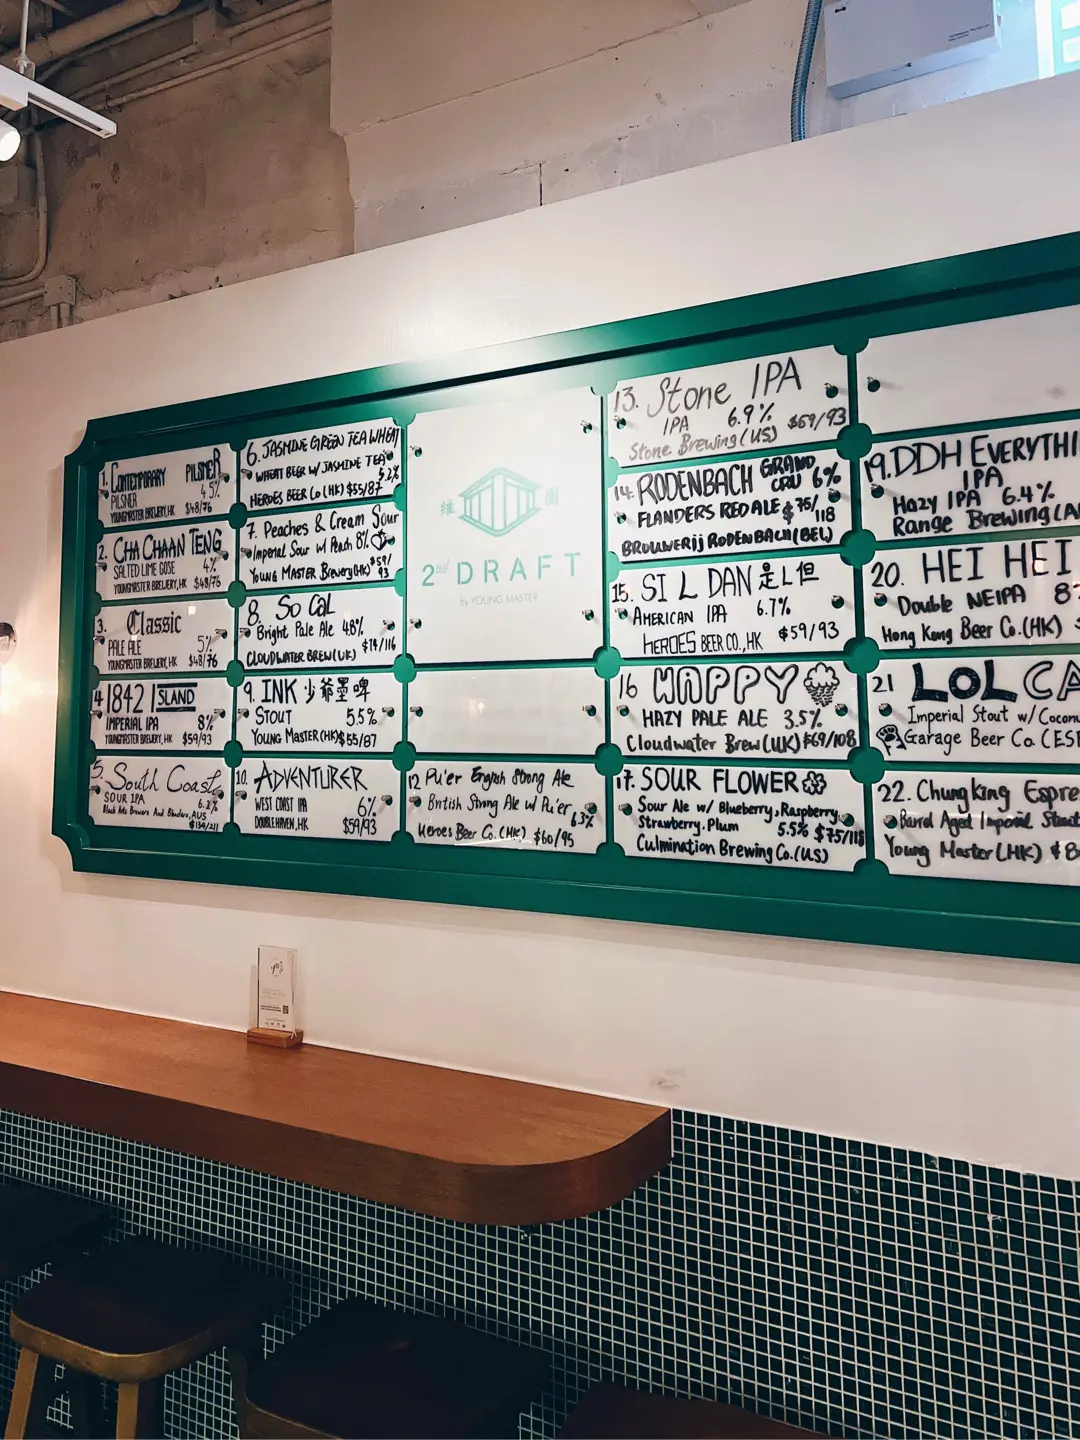 1. CONTEMPORARY PILSNER
PILSNER 4.5%
YOUNGMASTER BREWERY, HK $48/76
2. CHA CHAAN TENG
SALTED LIME GOSE 4%
YOUNGMASTER BREWERY, HK $48/76
3. Classic
PALE ALE 5%
YOUNGMASTER BREWERY, HK $48/76
4. 1842 ISLAND
IMPERIAL IPA 8%
YOUNGMASTER BREWERY, HK $59/93
5. South Coast
SOUR IPA 6.2%
Brewers And Blenders, AUS
$134/211
6. JASMINE GREEN TEA WHEAT
WHEAT BEER W/ JASMINE TEA 5.2%
HEROES BEER Co (HK) $55/87
7. Peaches & Cream Sour
Imperial Sour w/ Peach 8%
YOUNG MASTER Brewery (HK) $59/93
8. So Cal
Bright Pale Ale 4.8%
CLOUDWATER BREW (UK) $74/116
9. INK 少爺墨啤
STOUT 5.5%
YOUNG MASTER (HK) $55/87
10. ADVENTURER
WEST COAST IPA 6%
DOUBLEHAVEN, HK $59/93
維 園
2nd DRAFT
by YOUNG MASTER
12 Pu'er English Strong Ale
British Strong Ale w/ Pu'er 6.3%
Heroes Beer Co. (HK) $60/95
13. Stone IPA
IPA 6.9%
Stone Brewing (US) $59/93
14. RODENBACH GRAND CRU 6%
FLANDERS RED ALE $75/118
BROUWERIJ RODENBACH (BEL)
15. SI L DAN 是L但
AMERICAN IPA 6.7%
HEROES BEER CO., HK $59/93
16 HAPPY
HAZY PALE ALE 3.5%
Cloudwater Brew (UK) $69/108
17. SOUR FLOWER
Sour Ale w/ Blueberry, Raspberry,
Strawberry, Plum 5.5% $75/118
Culmination Brewing Co. (US)
19. DDH EVERYTHI
IPA
Hazy IPA 6.4%
Range Brewing (A
20. HEI HEI
Double NEIPA 8
Hong Kong Beer Co. (HK) $
21 LOL CA
Imperial Stout w/ Coconu
Garage Beer Co. (ES
22. Chungking Espre
Barrel Aged Imperial Stout
Young Master (HK) $8